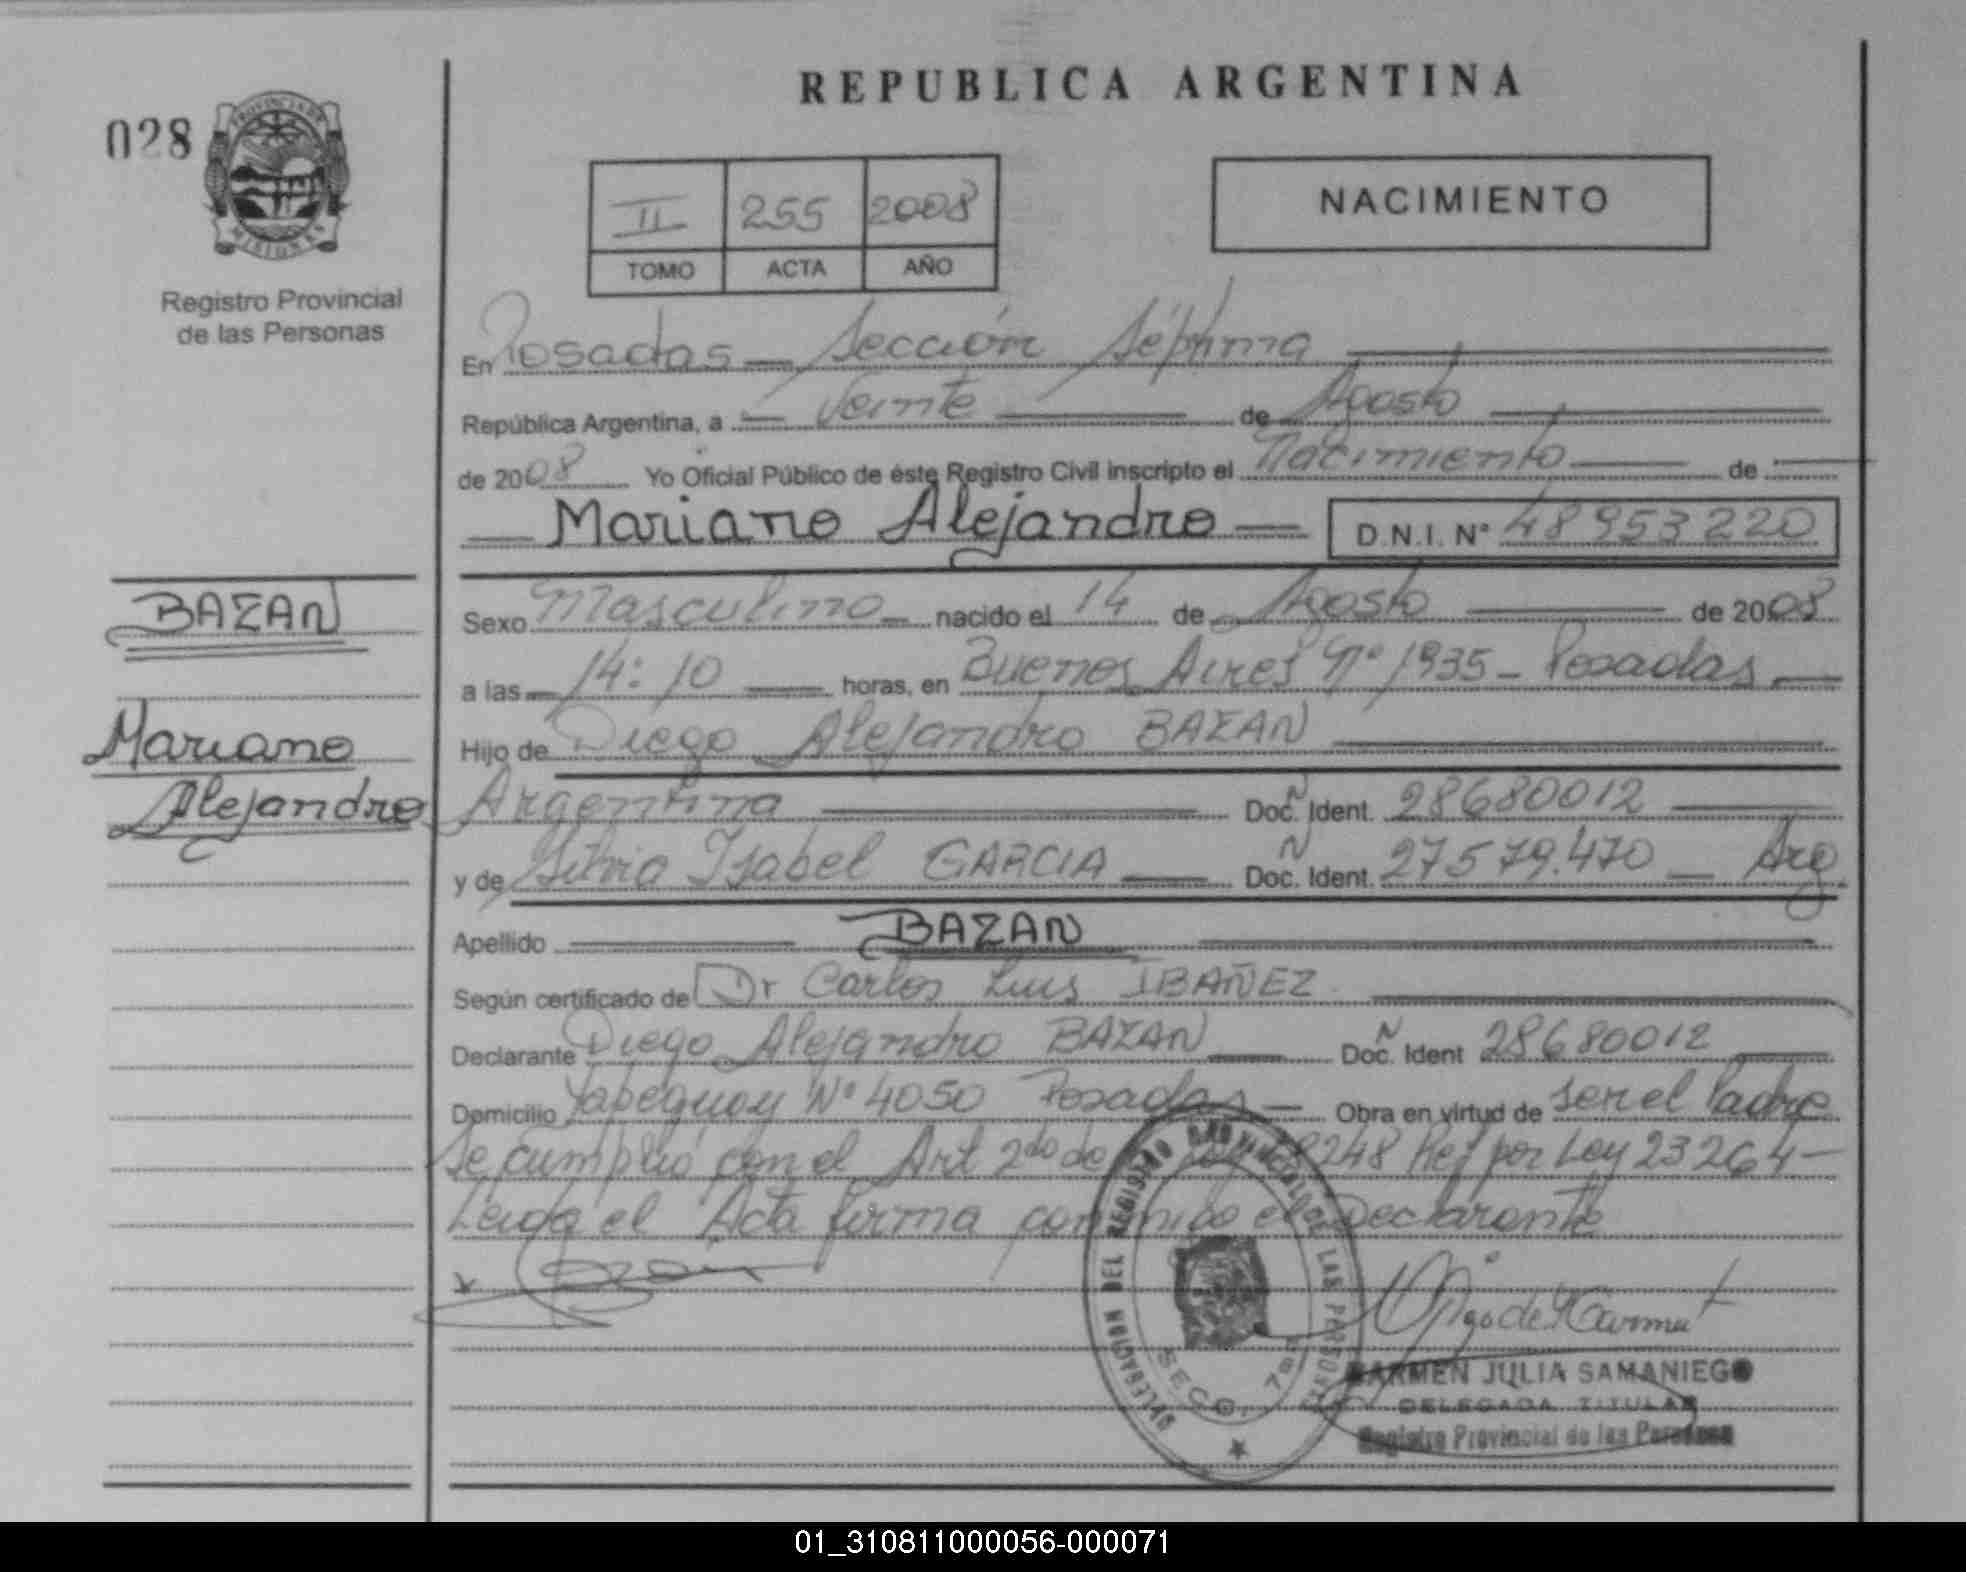 REPUBLICA ARGENTINA
028
PROVINCIA DE
MISIONES
Registro Provincial
de las Personas
NACIMIENTO
II 255 2008
TOMO ACTA AÑO
En Posadas Sección Séptima
República Argentina, a Veinte de Agosto
de 2008 Yo Oficial Público de éste Registro Civil inscripto el Nacimiento de
Mariano Alejandro D.N.I. N° 48953220
BAZAN
Mariano
Alejandro
Sexo Masculino nacido el 14 de Agosto de 2008
a las 14:10 horas, en Buenos Aires N° 1935 - Posadas
Hijo de Diego Alejandro BAZAN
Argentina Doc. Ident. 28680012
y de Silvia Isabel GARCIA Doc. Ident. 27579.470 Arg
Apellido BAZAN
Según certificado de Dr Carlos Luis IBAÑEZ
Declarante Diego Alejandro BAZAN Doc. Ident 28680012
Domicilio Yapeguay N° 4050 Posadas Obra en virtud de ser el Padre
Se cumplió con el Art 2do de 248 Ref por Ley 23264
Leida el Acta firma conmigo el Declarante
DELEGACION DEL REGISTRO PROVINCIAL DE LAS PERSONAS
SECC. 7
CARMEN JULIA SAMANIEGO
DELEGADA TITULAR
Registro Provincial de las Personas
01_310811000056-000071